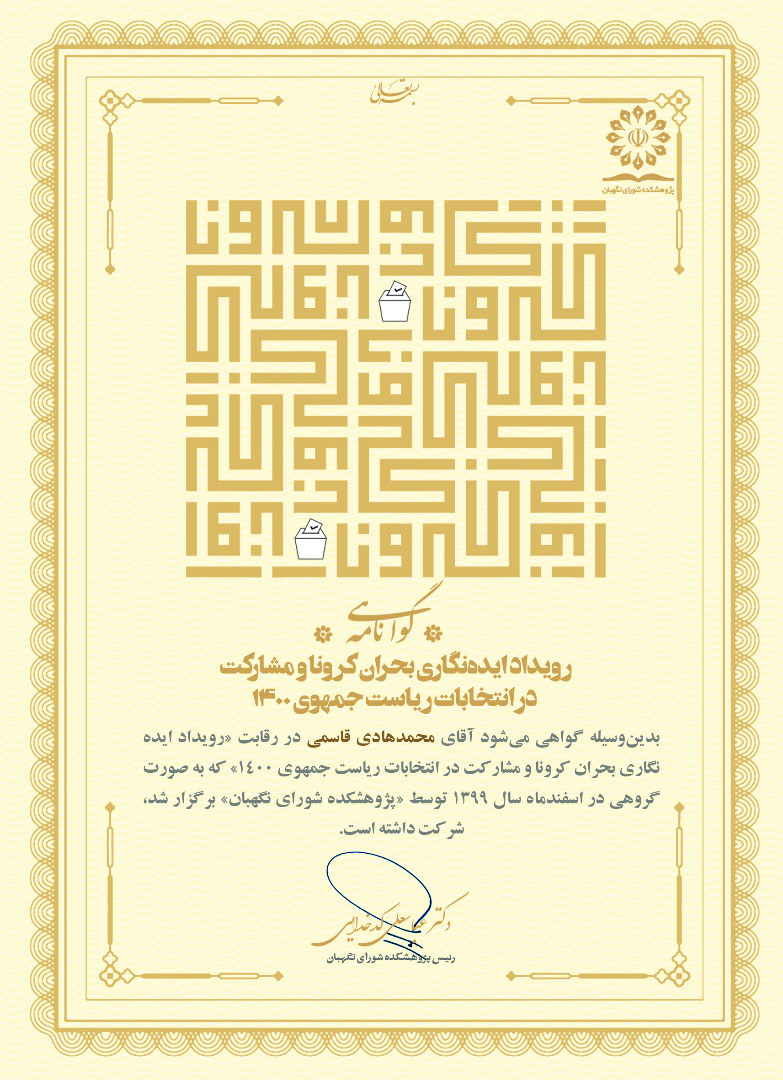 بسمه تعالی
پژوهشکده شورای نگهبان
گواهی نامه
رویداد ایده‌نگاری بحران کرونا و مشارکت
در انتخابات ریاست جمهوی ۱۴۰۰
بدین‌وسیله گواهی می‌شود آقای محمدهادی قاسمی در رقابت «رویداد ایده
نگاری بحران کرونا و مشارکت در انتخابات ریاست جمهوی ۱۴۰۰» که به صورت
گروهی در اسفندماه سال ۱۳۹۹ توسط «پژوهشکده شورای نگهبان» برگزار شد،
شرکت داشته است.
دکتر عباسعلی کدخدایی
رئیس پژوهشکده شورای نگهبان